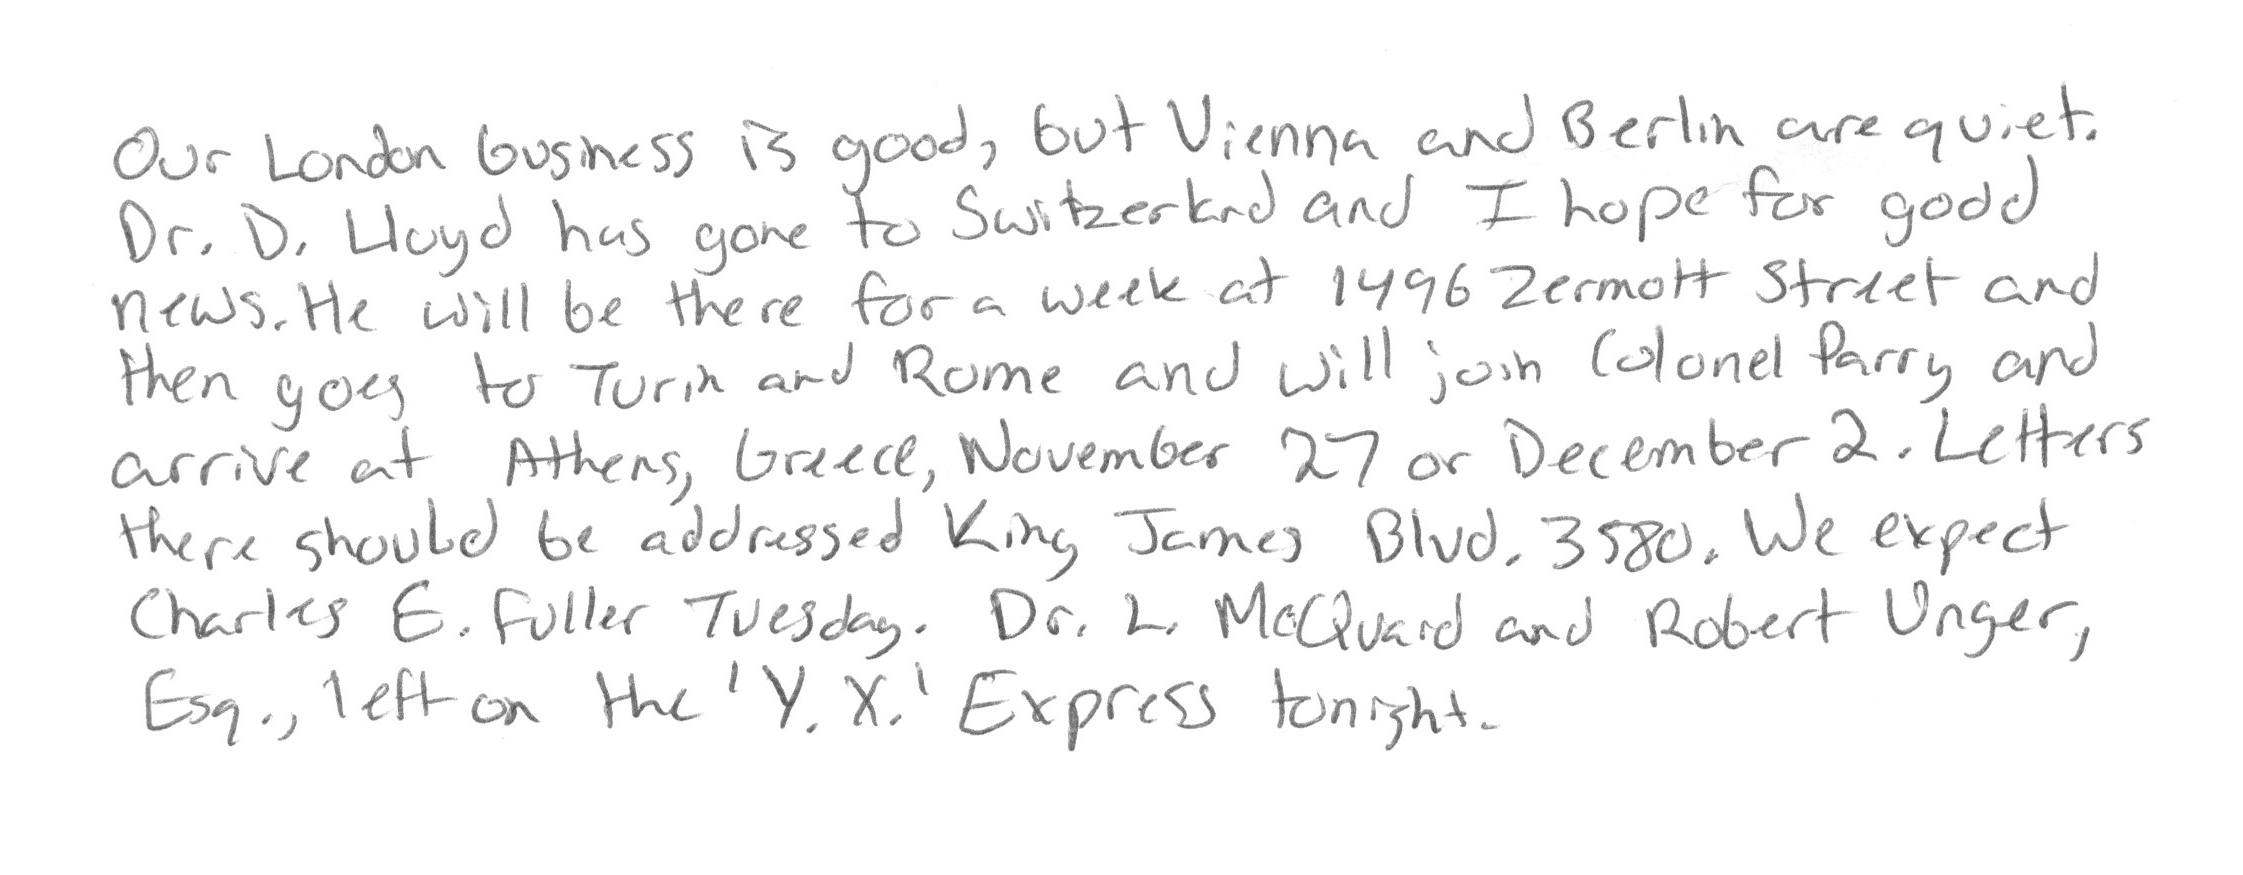 Our London business is good, but Vienna and Berlin are quiet.
Dr. D. Lloyd has gone to Switzerland and I hope for good
news. He will be there for a week at 1496 Zermott Street and
then goes to Turin and Rome and will join Colonel Parry and
arrive at Athens, Greece, November 27 or December 2. Letters
there should be addressed King James Blvd. 3580. We expect
Charles E. Fuller Tuesday. Dr. L. McQuaid and Robert Unger,
Esq., left on the 'Y. X.' Express tonight.